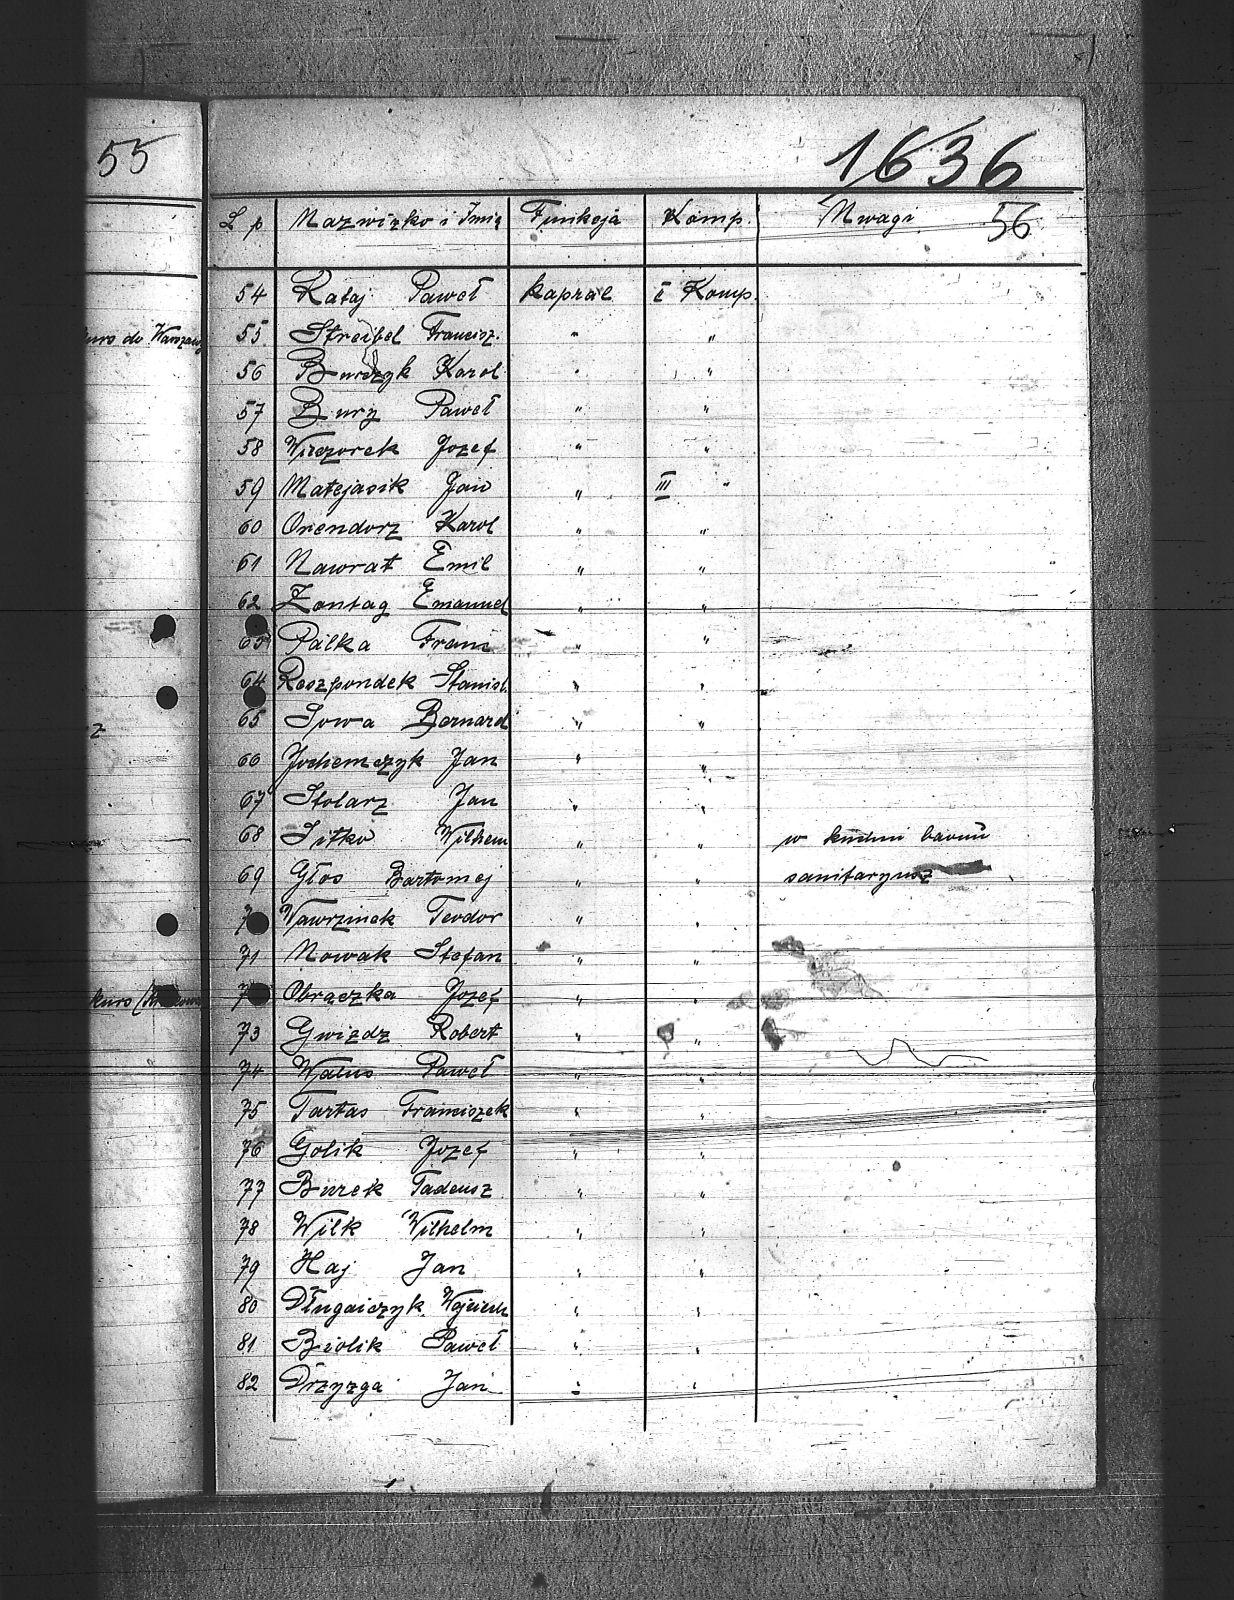 55
1636
56
L p Nazwizko i Imię Funkcja Komp. Uwagi
54 Rataj Paweł Kapral I Komp.
kurs do Warszawy
55 Streibel Francisz. " "
56 Burczyk Karol " "
57 Bury Paweł " "
58 Wieczorek Jozef " "
59 Matejasik Jan " III "
60 Orendorz Karol " "
61 Nawrat Emil " "
62 Zontag Emanuel " "
63 Palka Franc " "
64 Roszpondek Stanisł. " "
65 Sowa Bernard " "
66 Jochemczyk Jan " "
67 Stolarz Jan " "
68 Sitko Wilhem " " w kuchni baonu
69 Głos Bartomiej " " sanitaryusz
Wawrzinek Teodor " "
71 Nowak Stefan " "
kurs
Obrączka Jozef " "
73 Gwizdz Robert " "
74 Walus Paweł " "
75 Tartas Franciszek " "
76 Golik Jozef " "
77 Burek Tadeusz " "
78 Wilk Wilhelm " "
79 Haj Jan " "
80 Długaiczyk Wojciech " "
81 Biolik Paweł " "
82 Drzyzga Jan " "